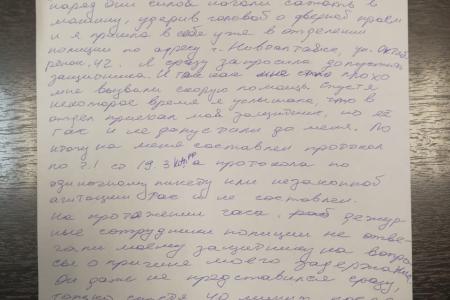 наряд они силой начали сажать в
машину, ударив головой о дверной проём
и я пришла в себе уже в отделении
полиции по адресу г. Новоалтайск, ул.
42. Я сразу запросила допустить
защитника. И так как мне стало плохо
мне вызвали скорую помощь. Спустя
некоторое время я услышала, что в
отдел приехал мой защитник, но её
так и не допустили до меня. По
итогу на меня составлен протокол
по ч.1 ст 19.3 КоАП РФ а протокола по
одиночному пикету или незаконной
агитации так и не составлен.
На протяжении часа, дежур-
ные сотрудники полиции не отве-
чали моему защитнику на вопро-
сы о причине моего задержания.
Он даже не представился сразу,
только спустя 40 минут